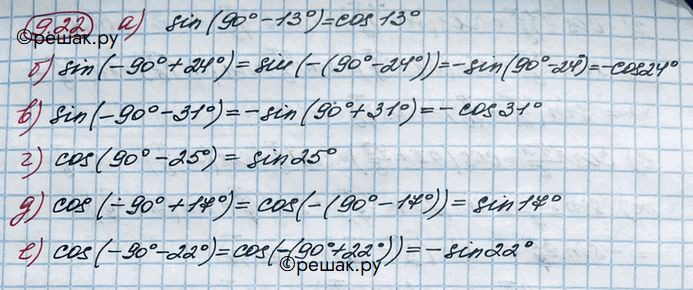 9.22 а) sin(90°-13°)=cos13°
©решак.ру
б) sin(-90°+24°)=sin(-(90°-24°))=-sin(90°-24°)=-cos24°
в) sin(-90°-31°)=-sin(90°+31°)=-cos31°
г) cos(90°-25°)=sin25°
д) cos(-90°+17°)=cos(-(90°-17°))=sin17°
е) cos(-90°-22°)=cos(-(90°+22°))=-sin22°
©решак.ру